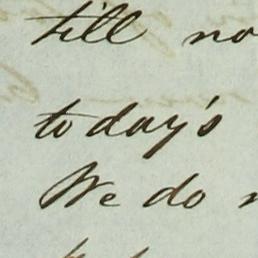 till no
to day's
We do